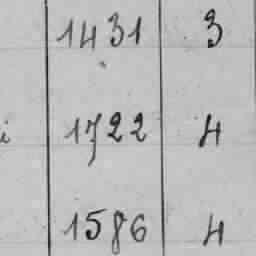 1431 3
i 1722 4
1586 4